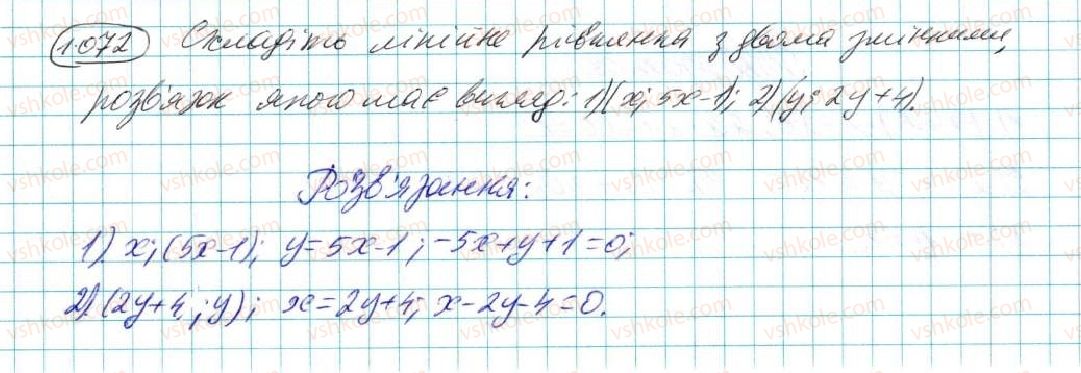 1.072 Складіть лінійне рівняння з двома змінними,
розв'язок якого має вигляд: 1) (x; 5x-1); 2) (y; 2y+4).
Розв'язання:
1) x; (5x-1); y=5x-1; -5x+y+1=0;
2) (2y+4; y); x=2y+4; x-2y-4=0.